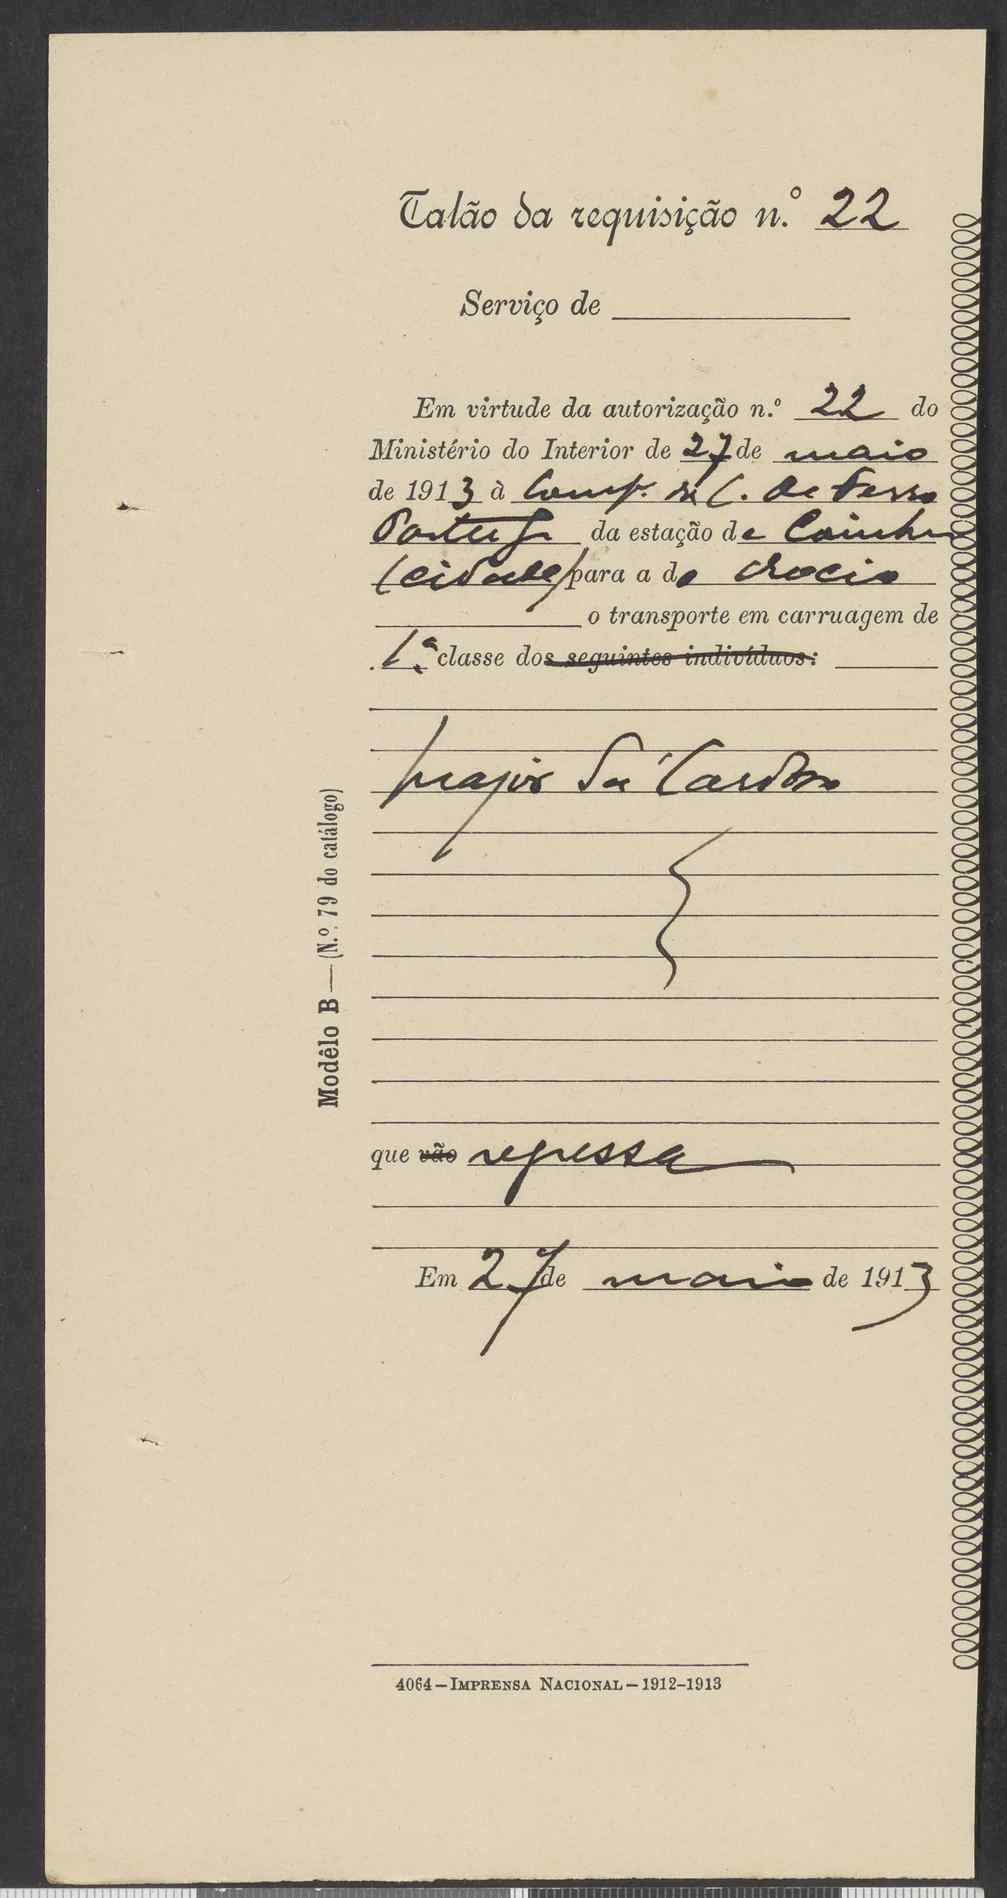 Talão da requisição n.º 22
Serviço de
Em virtude da autorização n.º 22 do
Ministério do Interior de 27 de maio
de 1913 à Comp. C. de Ferro
Portug da estação de Coimbra
(cidade) para a do Rocio
o transporte em carruagem de
1.ª classe dos seguintes indivíduos:
major Sá Cardoso
que vão regressa
Em 27 de maio de 1913
4064—Imprensa Nacional—1912-1913
Modêlo B—(N.º 79 do catálogo)